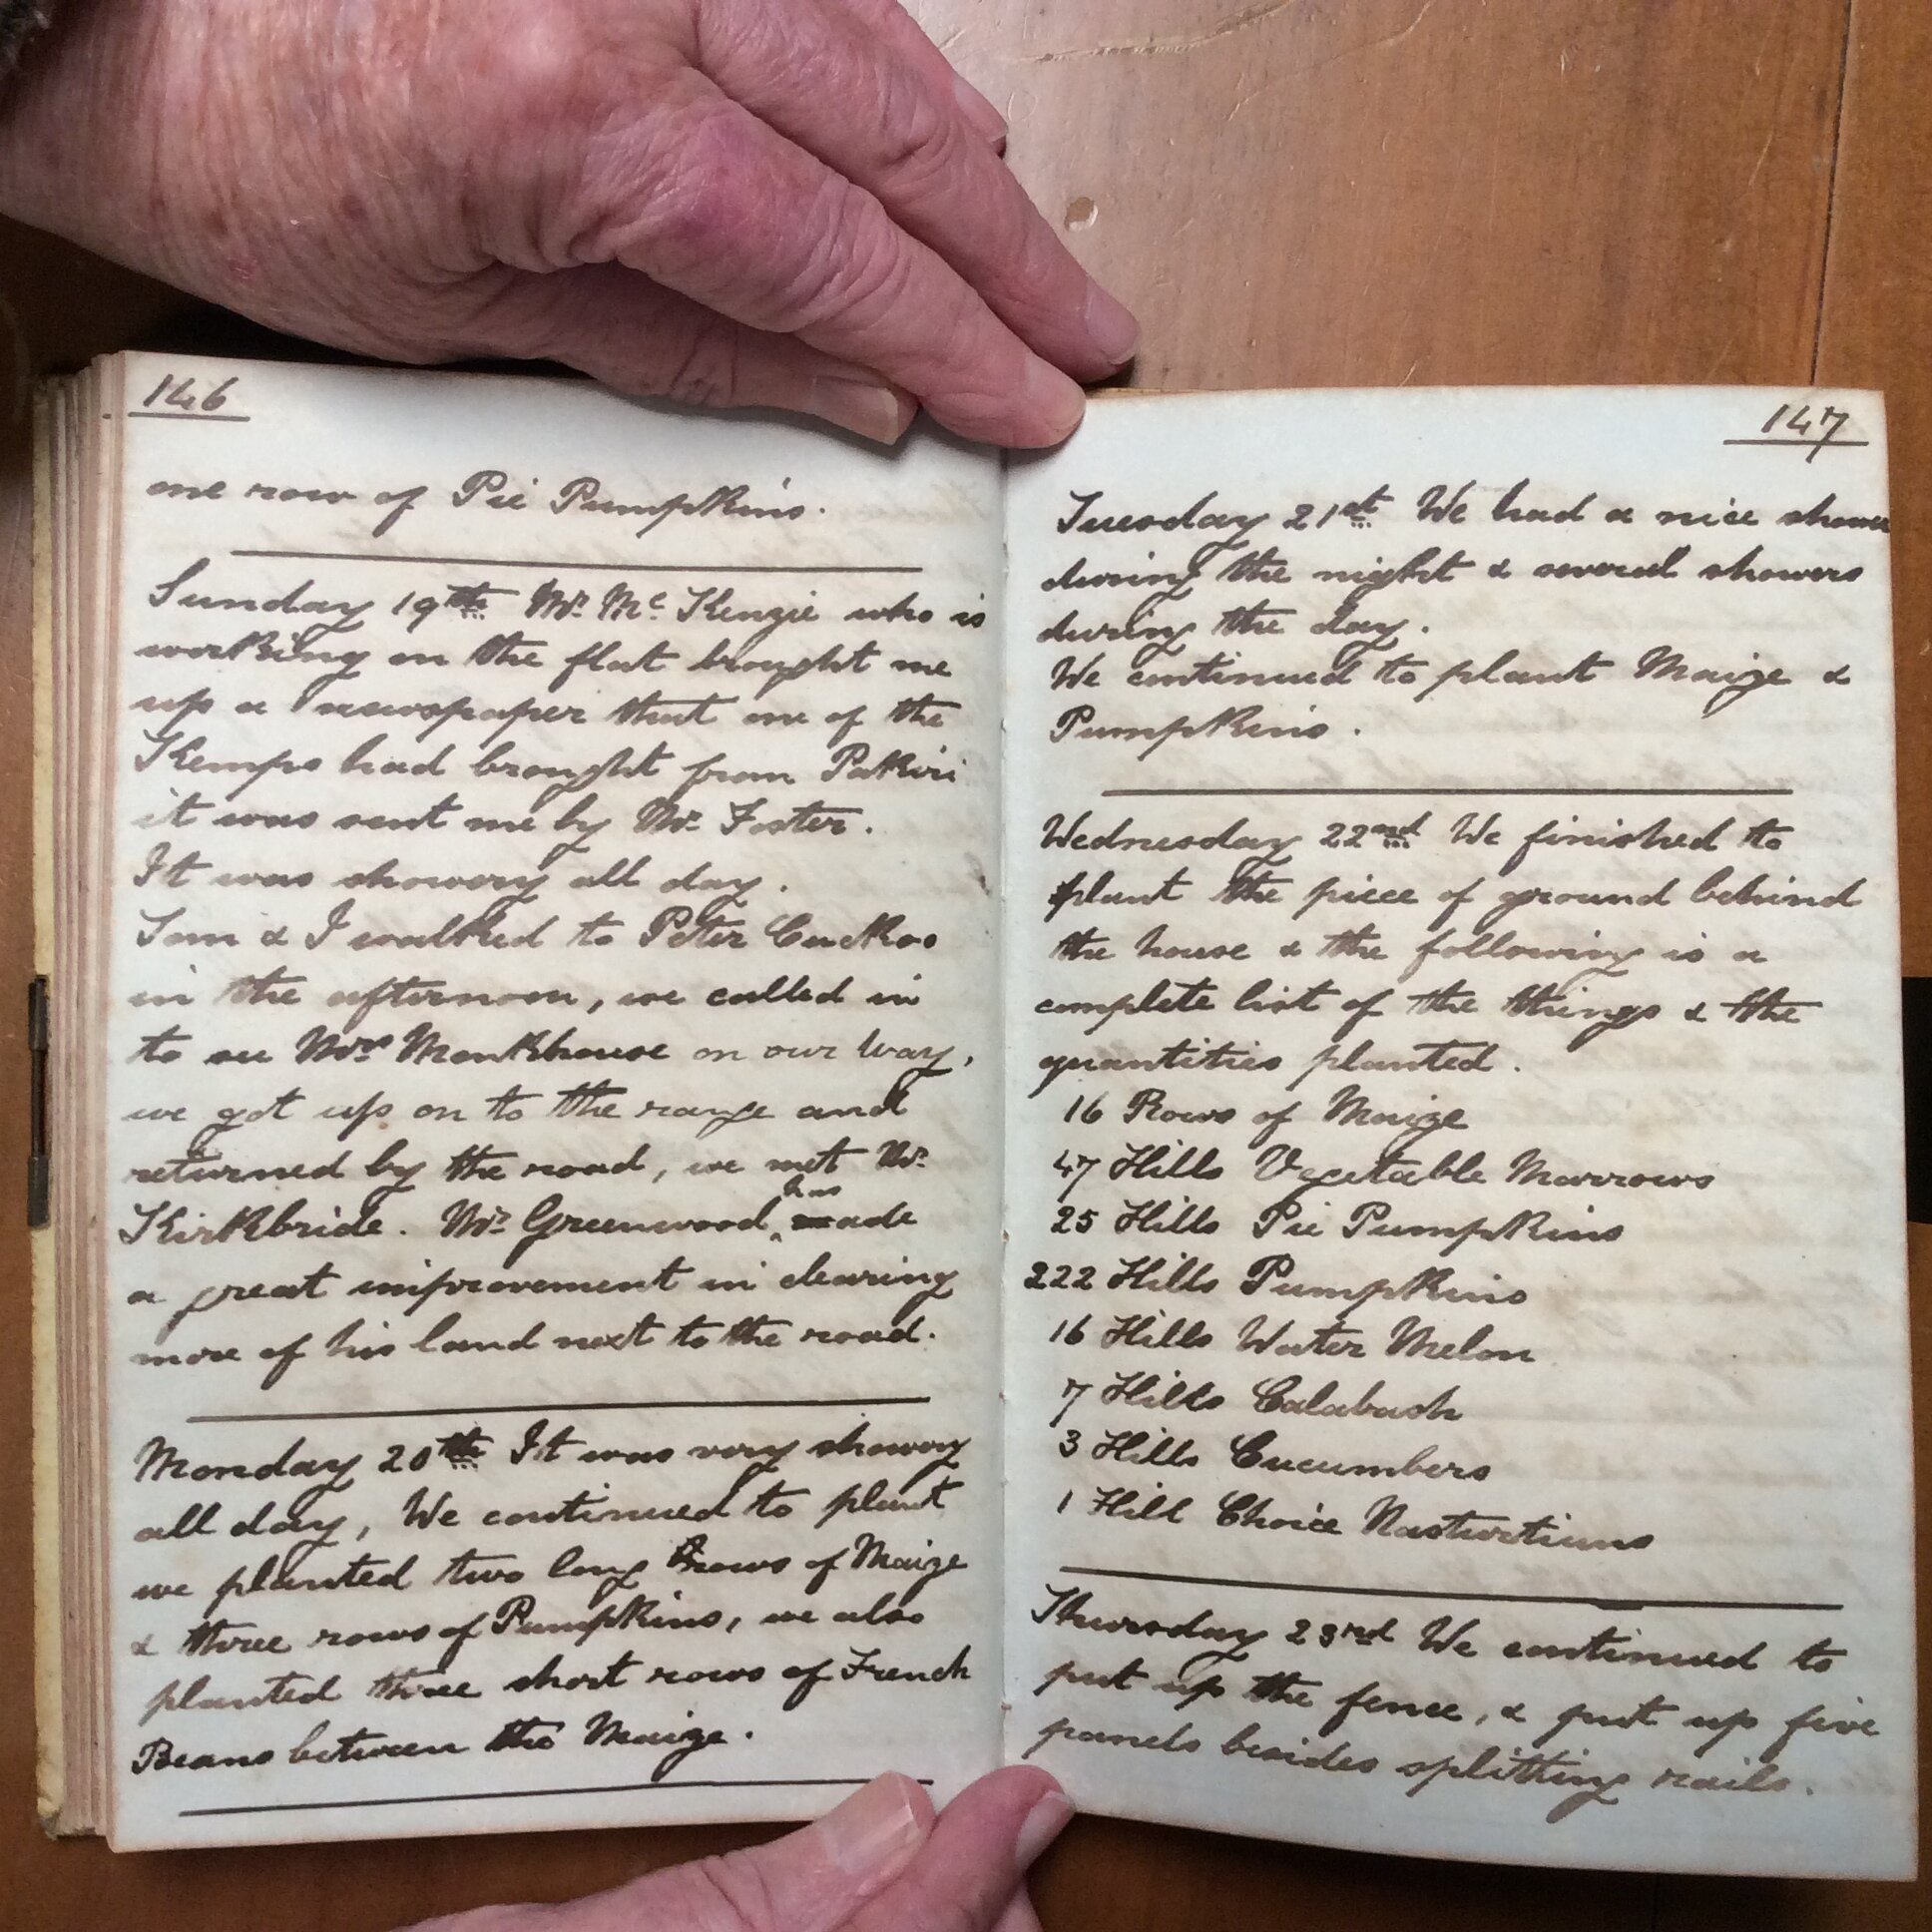 146
one row of Pie Pumpkins.
Sunday 19th Mr. Mc. Kenzie who is
working on the flat brought me
up a newspaper that one of the
Kemps had brought from Pakiri
it was sent me by Mr. Foster.
It was showery all day.
Tom & I walked to Peter Cuckoo
in the afternoon, we called in
to see Mrs Monkhouse on our way,
we got up on to the range and
returned by the road, we met Mr.
Kirkbride. Mr. Greenwood has made
a great improvement in clearing
more of his land next to the road.
Monday 20th It was very showery
all day, We continued to plant
we planted two long rows of Maize
& three rows of Pumpkins, we also
planted three short rows of French
Beans between the Maize.
147
Tuesday 21st We had a nice shower
during the night & several showers
during the day.
We continued to plant Maize &
Pumpkins.
Wednesday 22nd We finished to
plant the piece of ground behind
the house & the following is a
complete list of the things & the
quantities planted.
16 Rows of Maize
47 Hills Vegetable Marrows
25 Hills Pie Pumpkins
222 Hills Pumpkins
16 Hills Water Melon
7 Hills Calabash
3 Hills Cucumbers
1 Hill Choice Nasturtiums
Thursday 23rd We continued to
put up the fence, & put up five
panels besides splitting rails.